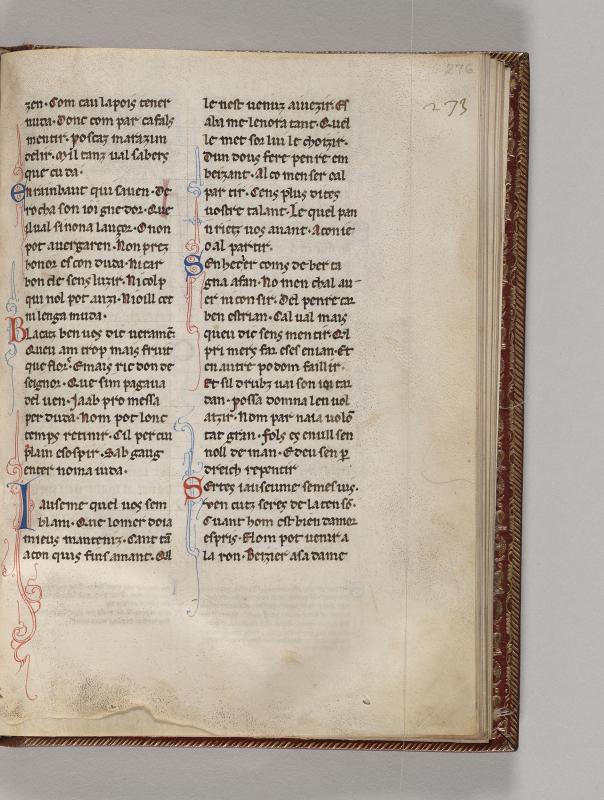 276
273
zen · Com cau lapois tener
nuta · Donc com par cafals
mentir · poscaz marazun
delir · Mil tanz ual sabers
que cuda ·
En rainbaut qui sauen · de
rocha son ioi gne dor · Que
ilual sinona lançor · O non
pot auergaren · Non prez
honor es con duda · Ni car
bon cle sens luzir · Ni colp
qui nol pot auzi · Ni oill cet
ni lenga muda ·
Blacatz ben uos dic uerame᷃t ·
Queu am trop mais fruit
que flor · Emais ric don de
seignor · Que sim pagaua
del uen · Ja ab pro messa
per duda · Nom pot lonc
temps retinir · Cil per cui
plain esospir · Sab gaug
enter noina iuda ·
I auseme quel uos sem
blam · Que lomer doia
mieus mantenir · Cant tā
acon quis fins amant · Qil
le nest uenuz aiuezir · Es
aba me lenora tant · Quel
le met sor lui le choizir ·
Dun dous fere penre em
beizant · Al comenser oal
par tir · Cens plus dires
uostre talant · Le quel pan
nrietz uos auant · Aconie
o al partir ·
Senher coms de ber ta
gna afan · No men chal au
er ni consir · Del penre car
ben estrian · Cal ual mais
queu dic sens mentir · Qil
pri mers far eses enian · Et
en autre podom faillir ·
Et sil drutz uai son ioi tar
dan · possa domna len uol
aizir · Nom par naia uolō
tat gran · Fols es enuill sen
noll de man · E deu sen ꝑ
dreich repentir
Sertes iauseume semes uis ·
Ven cutz seres de la tensō ·
Cuant hom est bien damor
espris · Nom pot uenir a
la ron · Beizier asa dame